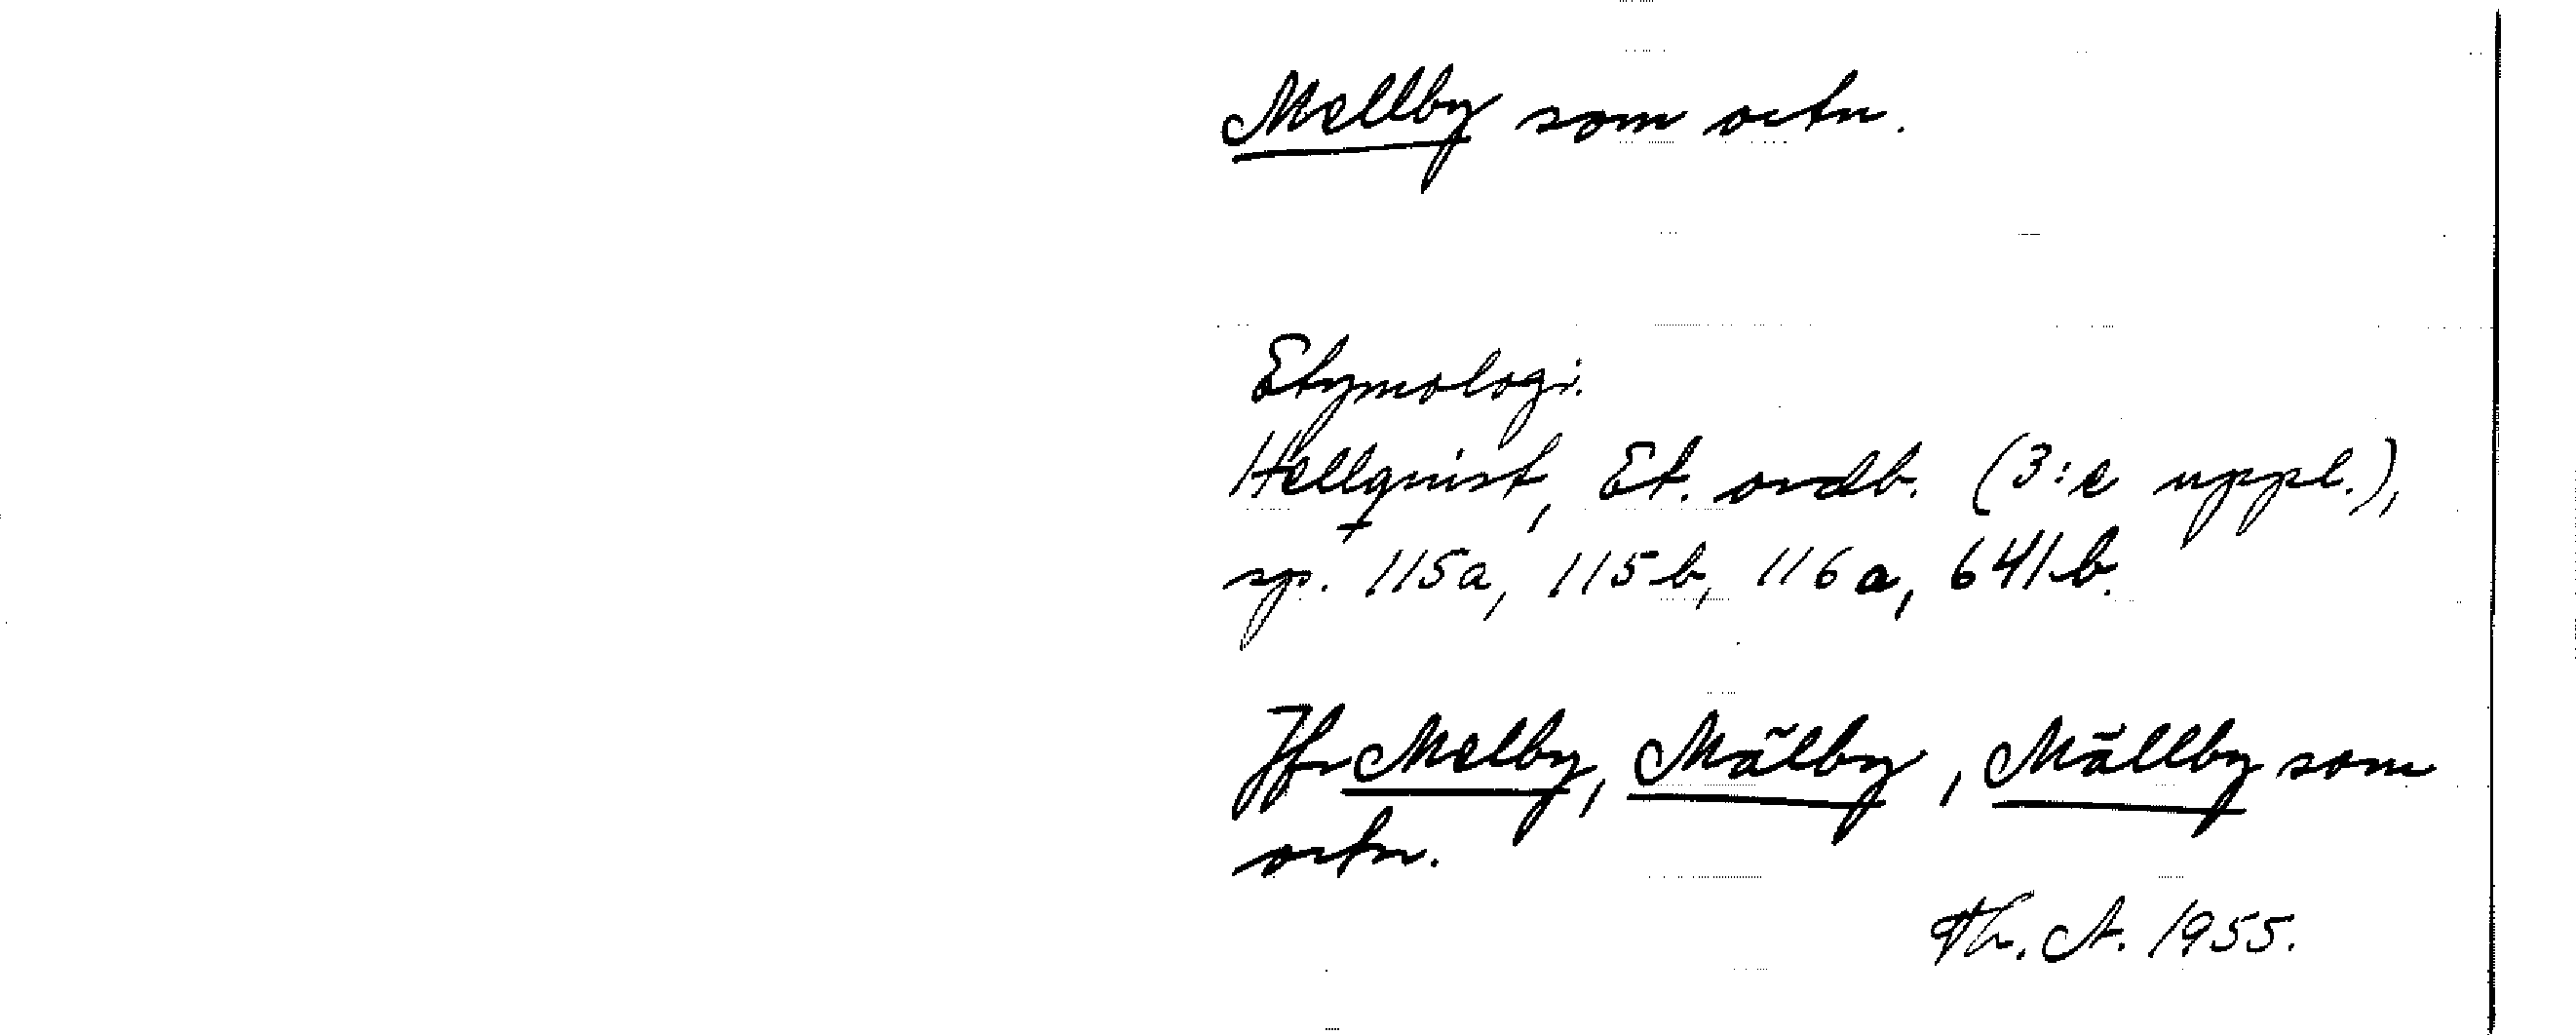 Mellby som ortn.
Etymologi.
Hellquist, Et. ordb. (3:e uppl.),
sp. 115a, 115b, 116a, 641b.
Jfr Melby, Mälby, Mällby som
ortn.
Th. A. 1955.